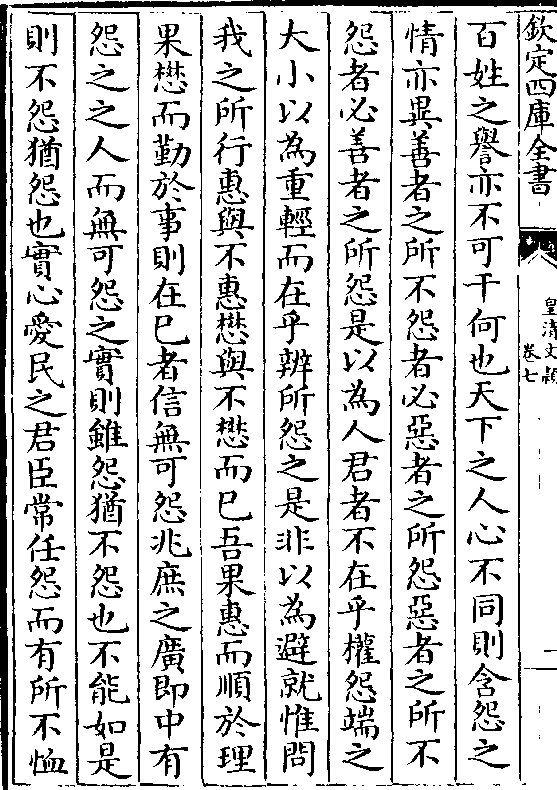 欽定四庫全書
皇清文穎
卷七
一
百姓之譽亦不可干何也天下之人心不同則含怨之
情亦異善者之所不怨者必惡者之所怨惡者之所不
怨者必善者之所怨是以為人君者不在乎權怨端之
大小以為重輕而在乎辨所怨之是非以為避就惟問
我之所行惠與不惠懋與不懋而已吾果惠而順於理
果懋而勤於事則在已者信無可怨兆庶之廣即中有
怨之之人而無可怨之實則雖怨猶不怨也不能如是
則不怨猶怨也實心愛民之君臣常任怨而有所不恤